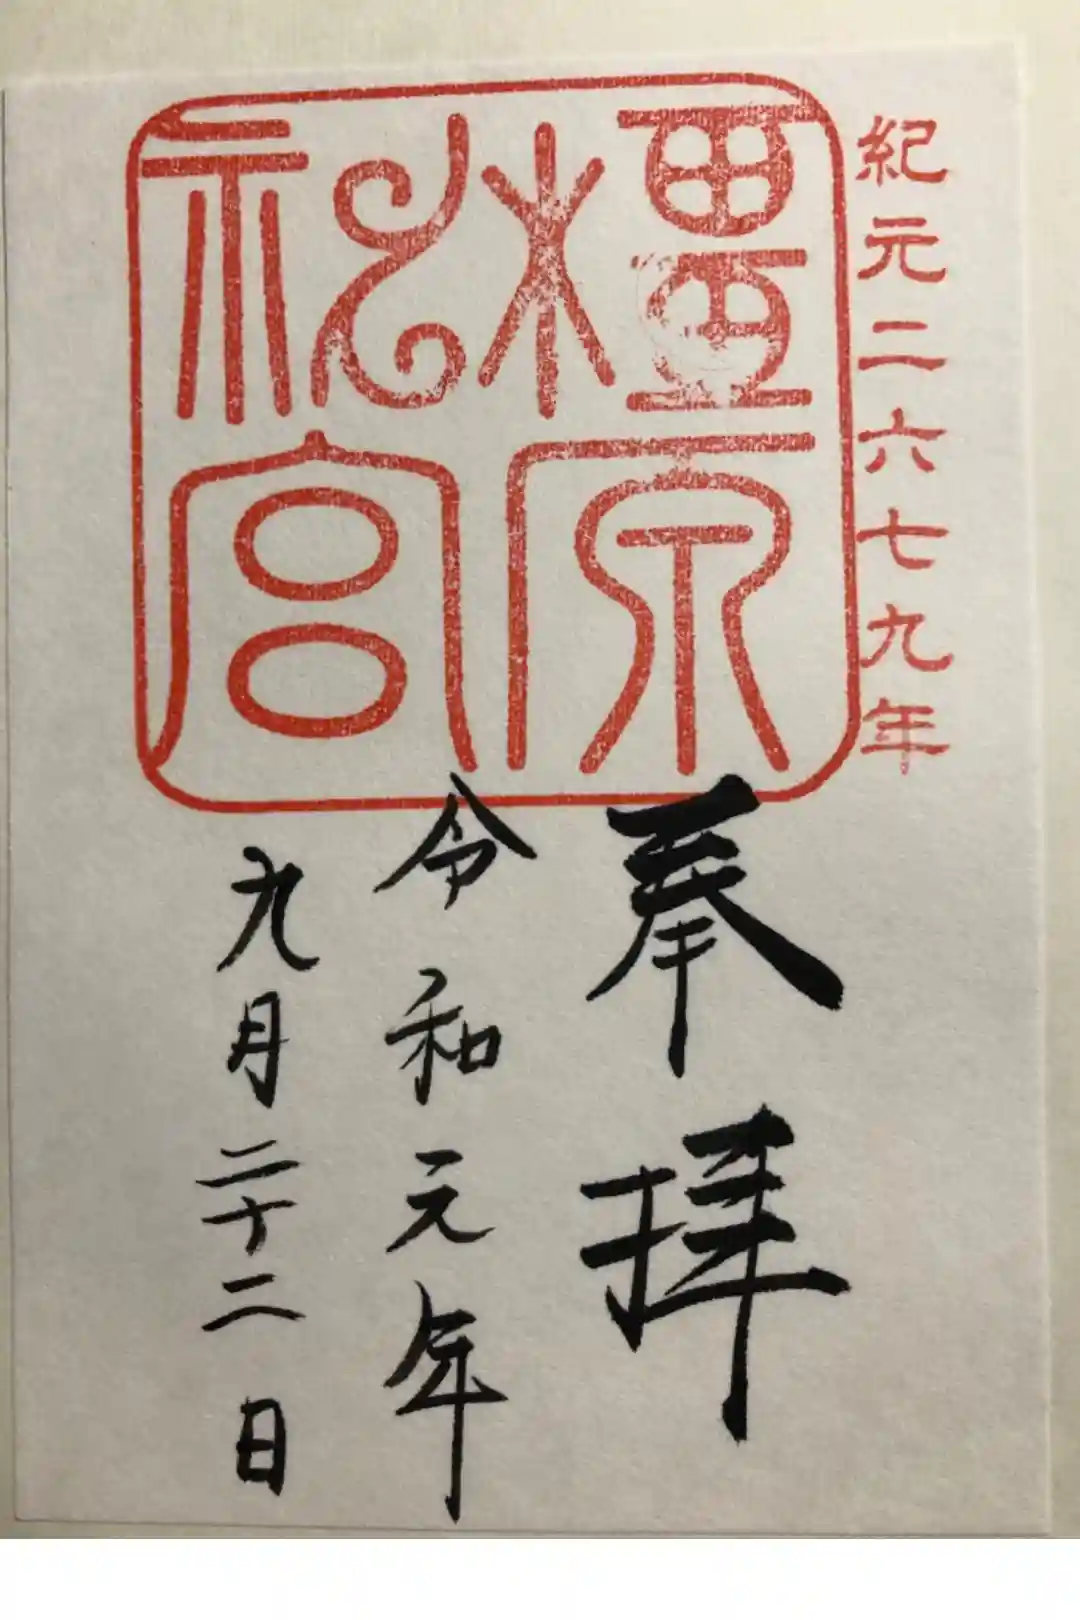 紀元二六七九年
橿原
神宮
奉拝
令和元年
九月二十二日